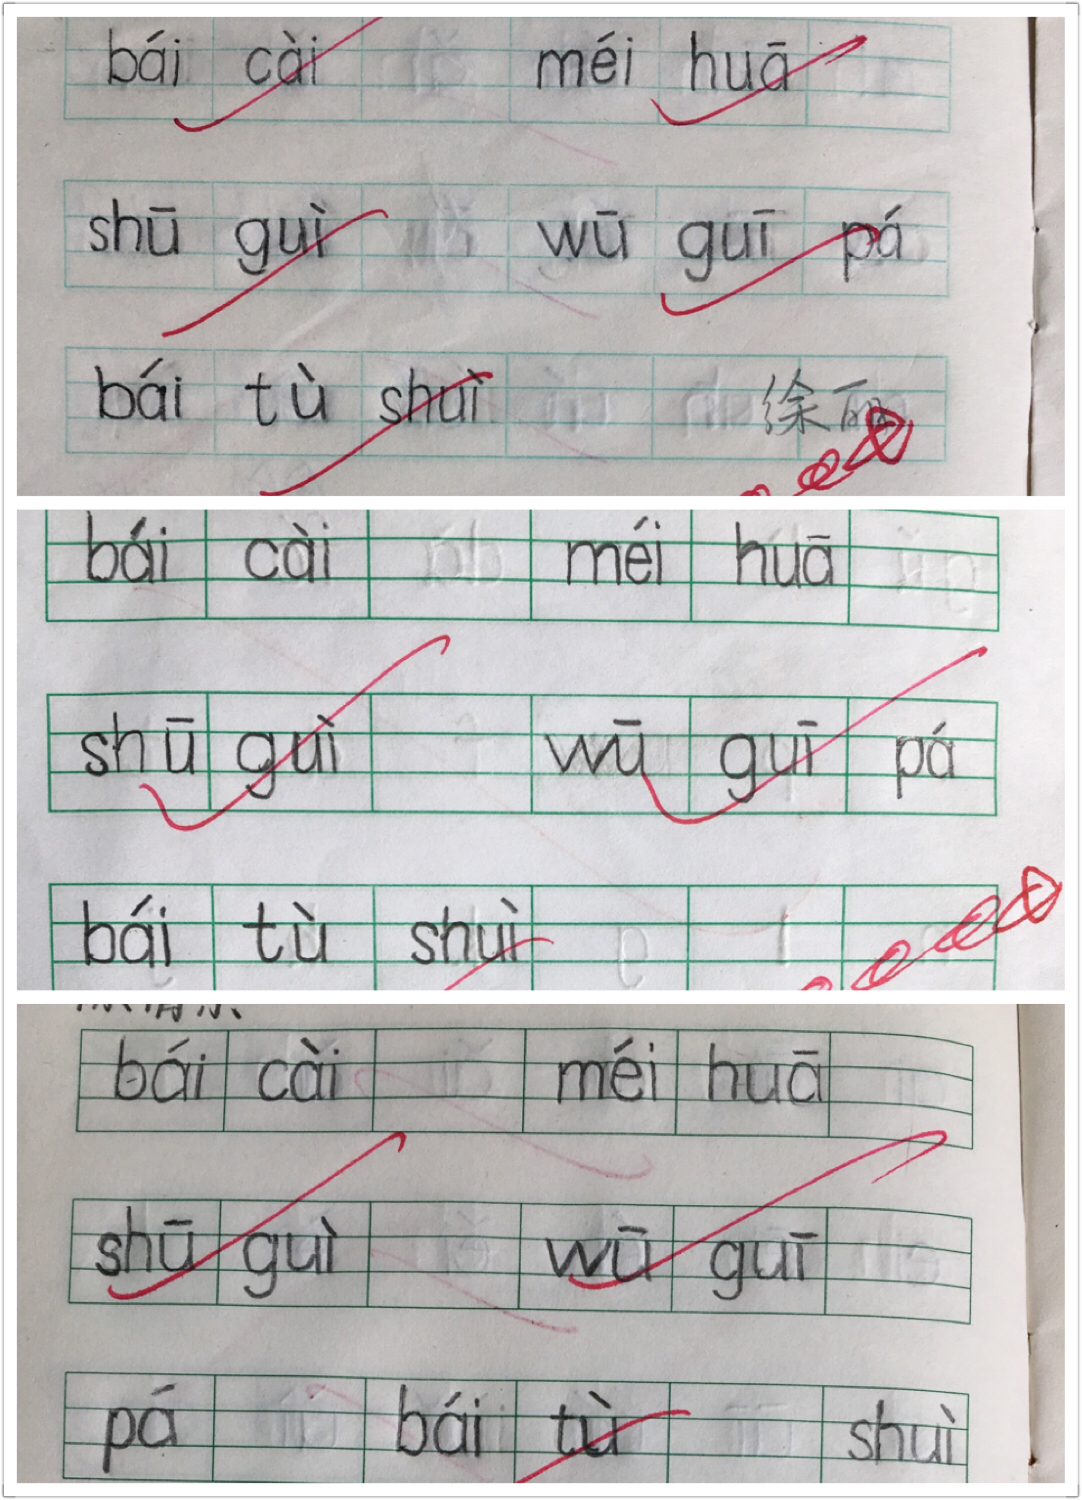 bái cài méi huā
shū guì wū guī pá
bái tù shuì 徐丽
bái cài méi huā
shū guì wū guī pá
bái tù shuì
bái cài méi huā
shū guì wū guī
pá bái tù shuì